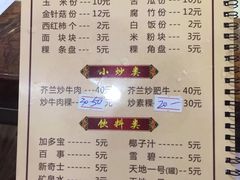 玉米份 10元 苦瓜份 10元
金针菇份 12元 腐竹份 12元
西红柿个 2元 白饭份 2元
面块块 3元 面份 3元
粿条盘 5元 粿角盘 5元
小炒类
芥兰炒牛肉 40元 芥兰炒肥牛 40元
炒牛肉粿 30.50元 炒素粿 20元
饮料类
加多宝 5元 椰子汁 5元
百事 5元 雪碧 5元
新奇士 5元 天地一号(罐) 5元
矿泉水 天地一号